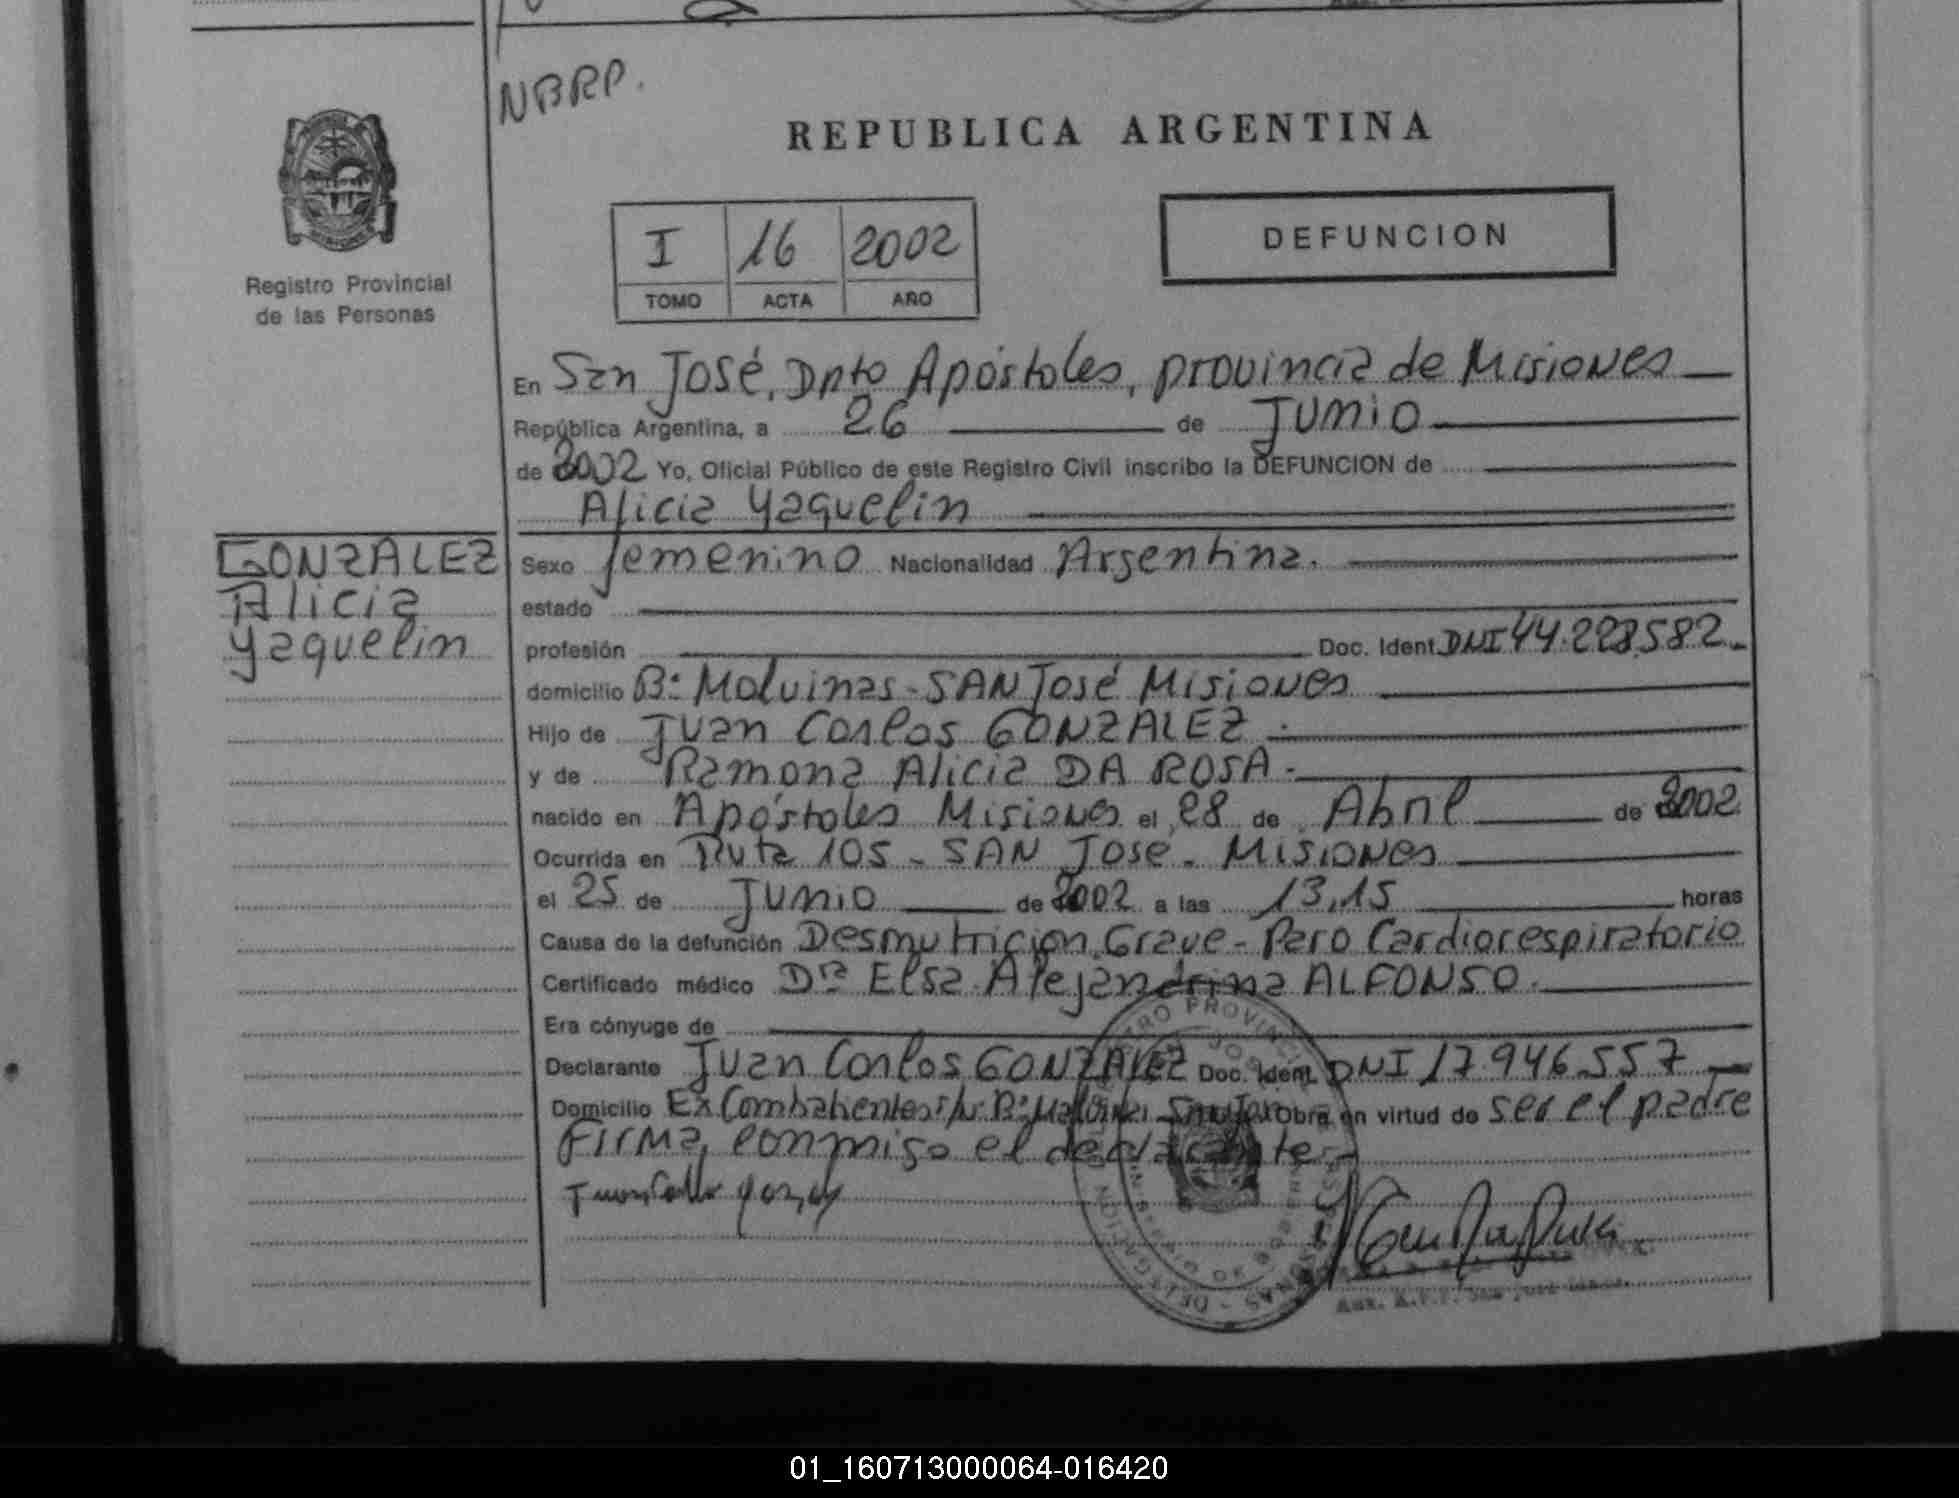 NBRP.
REPUBLICA ARGENTINA
Registro Provincial
de las Personas
I 16 2002
TOMO ACTA AÑO
DEFUNCION
En San José, Dpto Apóstoles, provincia de Misiones
República Argentina, a 26 de Junio
de 2002 Yo, Oficial Público de este Registro Civil inscribo la DEFUNCION de
Alicia Yaquelin
GONZALEZ
Alicia
Yaquelin
Sexo femenino Nacionalidad Argentina.
estado
profesión Doc. Ident. DNI 44.228.582
domicilio Bº Malvinas - SAN José Misiones
Hijo de Juan Carlos GONZALEZ.
y de Ramona Alicia DA ROSA.
nacido en Apóstoles Misiones el 28 de Abril de 2002
Ocurrida en Ruta 105 - SAN José. Misiones
el 25 de Junio de 2002 a las 13,15 horas
Causa de la defunción Desnutrición Grave - Paro Cardiorespiratorio
Certificado médico Dra Elsa Alejandrina ALFONSO.
Era cónyuge de
Declarante Juan Carlos GONZALEZ Doc. Ident. DNI 17.946.557
Domicilio Ex Combatientes s/n Bº Malvinas San José Obra en virtud de ser el padre
Firma conmigo el declarante
Juan Carlos
REGISTRO PROVINCIAL DE LAS PERSONAS - DELEGACION
Aux. R.P.P. San José
01_160713000064-016420